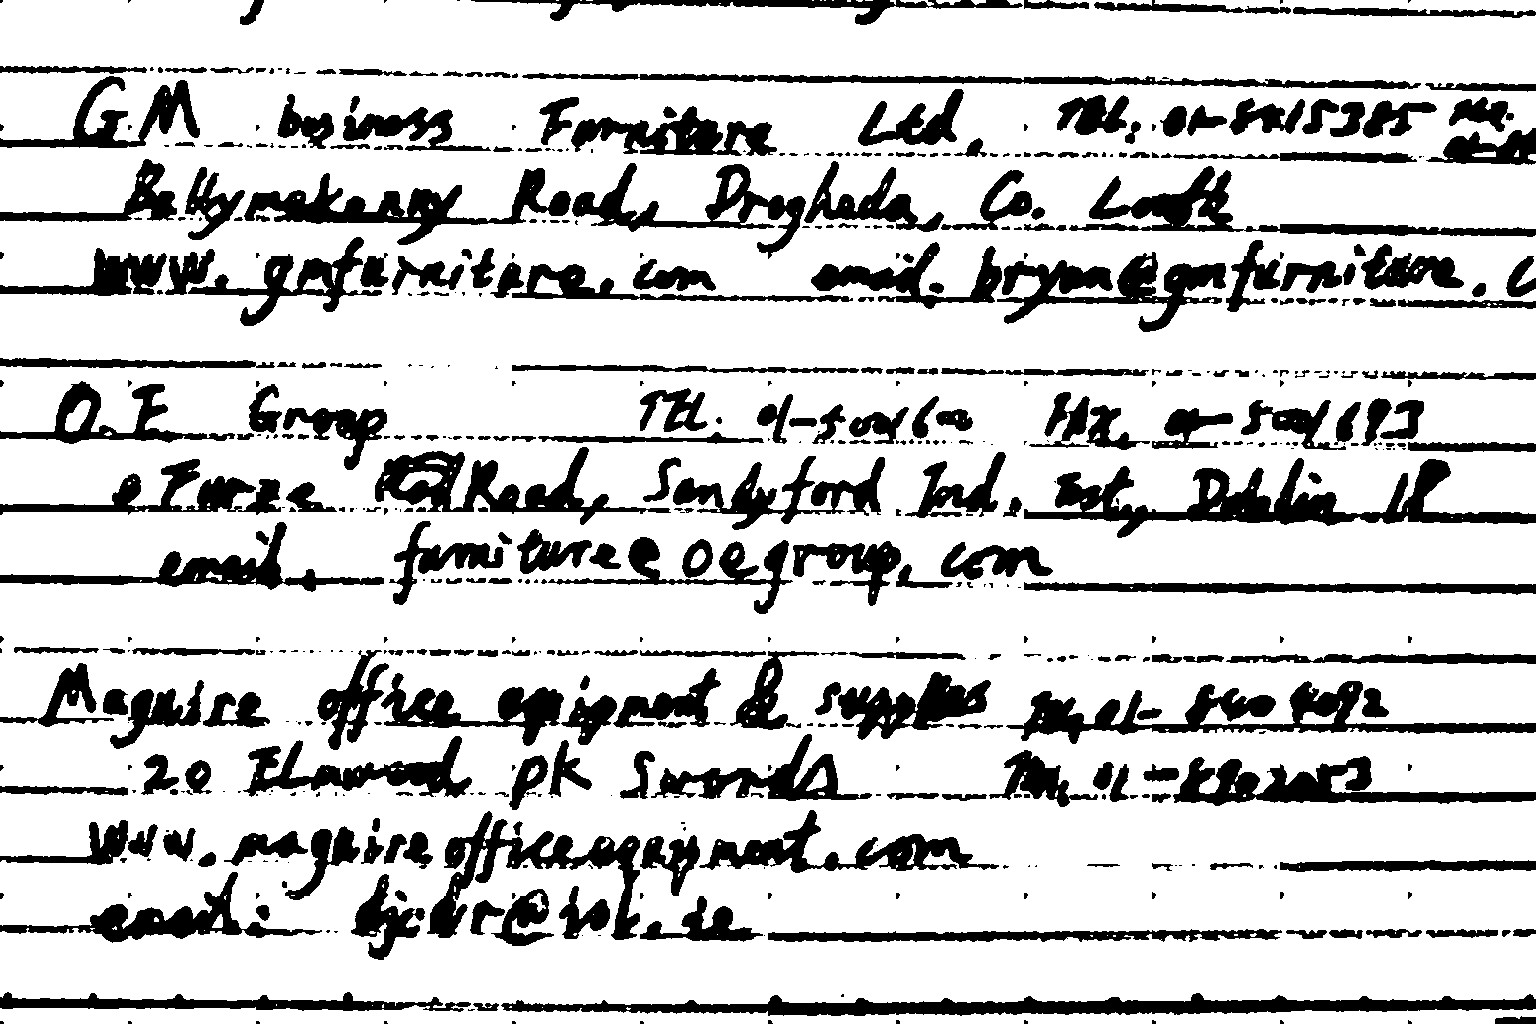 GM business Furniture Ltd, TEL: 01-8415385
Ballymakenny Road, Drogheda, Co. Louth
www.gmfurniture.com email. bryan@gmfurniture.c
O.E Group TEL: 01-5001600 FAX. 01-5001693
Furze Road, Sandyford Ind. Est, Dublin 18
email. furniture@oegroup.com
Maguire office equipment & supplies 01-8404092
20 Elmwood pk Swords 01-8902053
www.maguireofficeequipment.com
email: